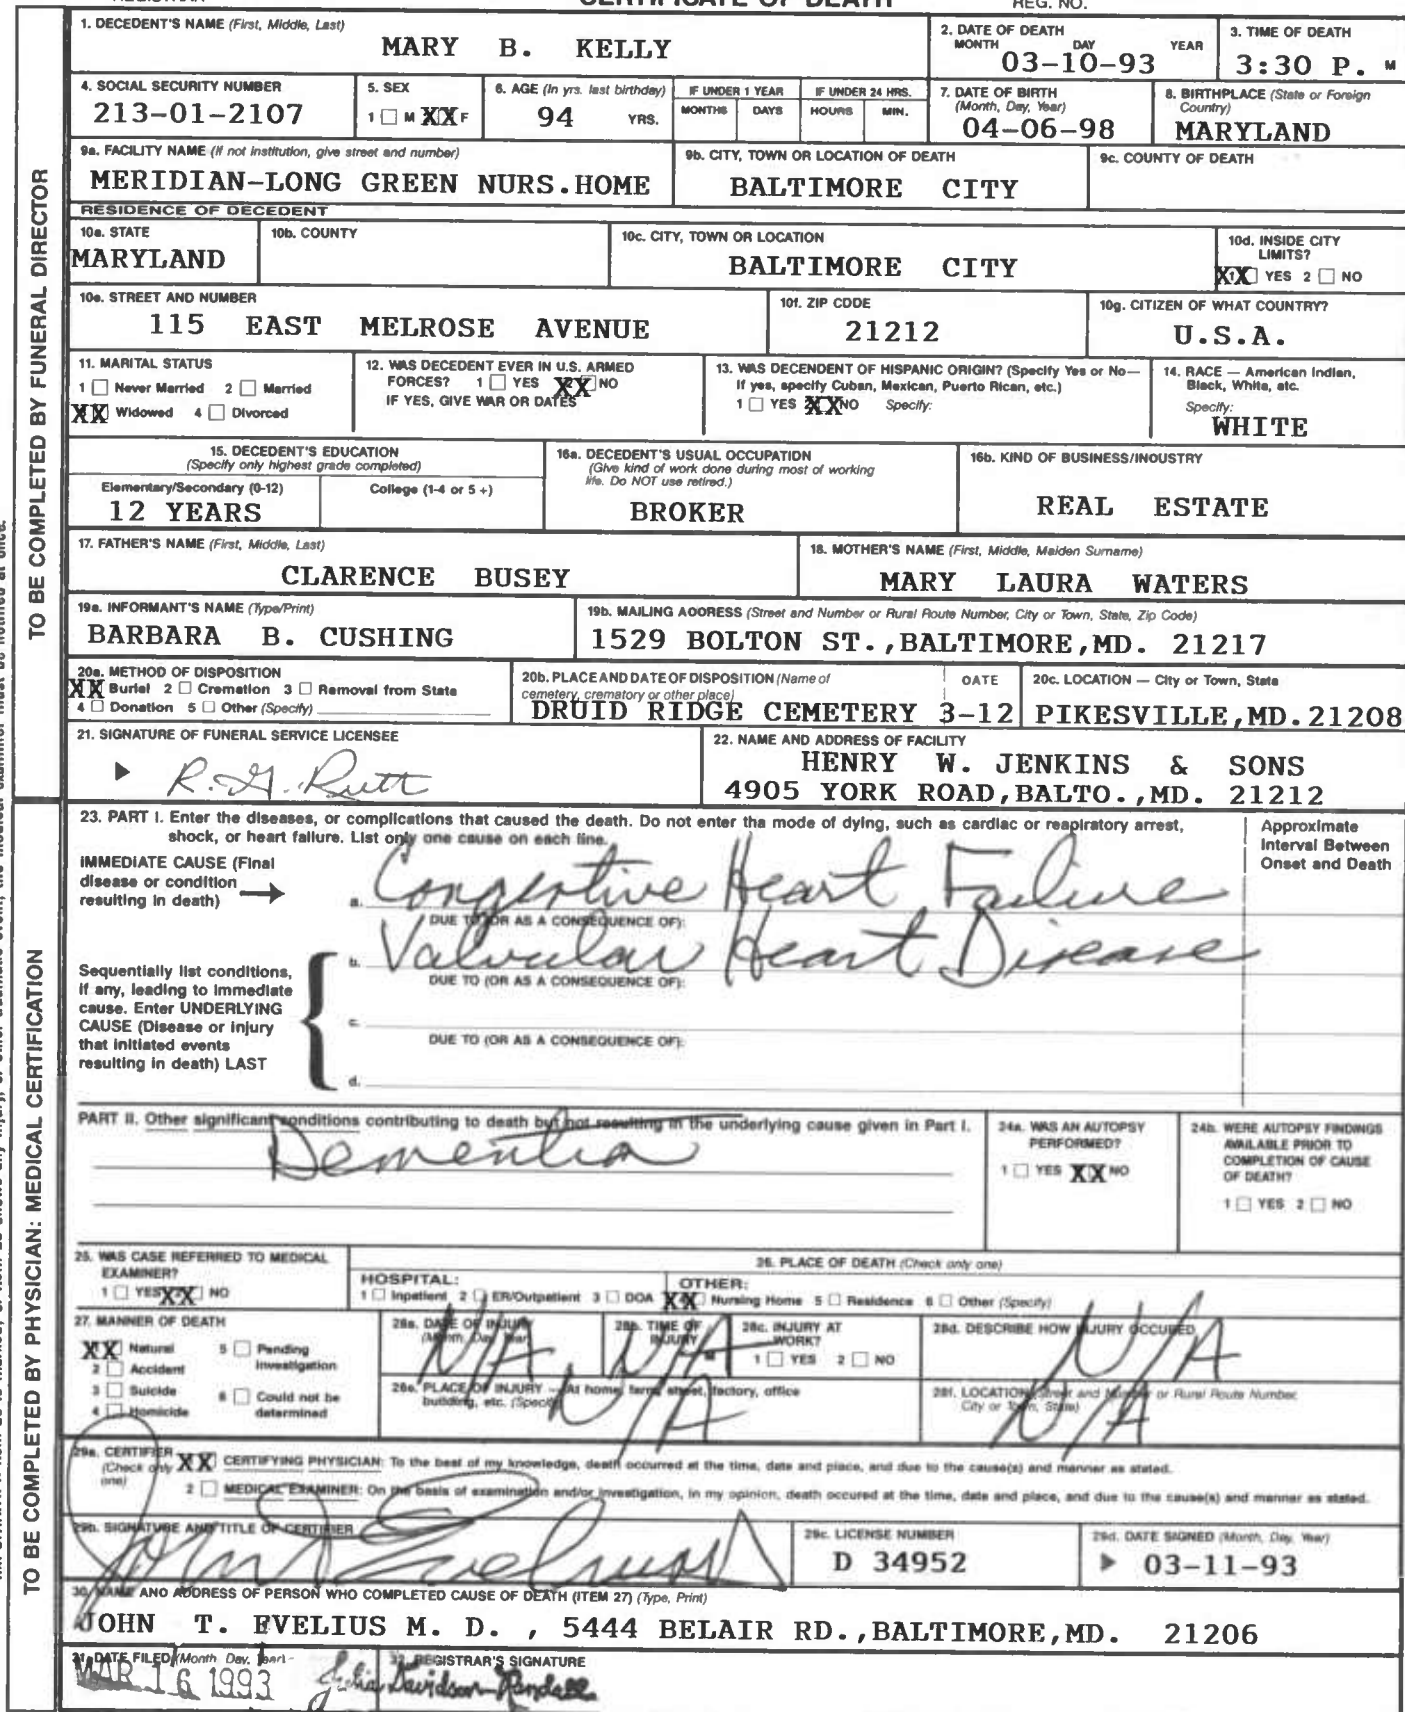 CERTIFICATE OF DEATH
REG. NO.
1. DECEDENT'S NAME (First, Middle, Last)
MARY B. KELLY
2. DATE OF DEATH
MONTH DAY YEAR
03-10-93
3. TIME OF DEATH
3:30 P. M
4. SOCIAL SECURITY NUMBER
213-01-2107
5. SEX
1 ☐ M XX F
6. AGE (In yrs. last birthday)
94 YRS.
IF UNDER 1 YEAR
MONTHS DAYS
IF UNDER 24 HRS.
HOURS MIN.
7. DATE OF BIRTH
(Month, Day, Year)
04-06-98
8. BIRTHPLACE (State or Foreign
Country)
MARYLAND
9a. FACILITY NAME (If not institution, give street and number)
MERIDIAN-LONG GREEN NURS.HOME
9b. CITY, TOWN OR LOCATION OF DEATH
BALTIMORE CITY
9c. COUNTY OF DEATH
RESIDENCE OF DECEDENT
10a. STATE
MARYLAND
10b. COUNTY
10c. CITY, TOWN OR LOCATION
BALTIMORE CITY
10d. INSIDE CITY
LIMITS?
XX YES 2 ☐ NO
10e. STREET AND NUMBER
115 EAST MELROSE AVENUE
10f. ZIP CODE
21212
10g. CITIZEN OF WHAT COUNTRY?
U.S.A.
11. MARITAL STATUS
1 ☐ Never Married 2 ☐ Married
XX Widowed 4 ☐ Divorced
12. WAS DECEDENT EVER IN U.S. ARMED
FORCES? 1 ☐ YES XX NO
IF YES, GIVE WAR OR DATES
13. WAS DECENDENT OF HISPANIC ORIGIN? (Specify Yes or No—
If yes, specify Cuban, Mexican, Puerto Rican, etc.)
1 ☐ YES XX NO Specify:
14. RACE — American Indian,
Black, White, etc.
Specify:
WHITE
15. DECEDENT'S EDUCATION
(Specify only highest grade completed)
Elementary/Secondary (0-12)
12 YEARS
College (1-4 or 5 +)
16a. DECEDENT'S USUAL OCCUPATION
(Give kind of work done during most of working
life. Do NOT use retired.)
BROKER
16b. KIND OF BUSINESS/INDUSTRY
REAL ESTATE
17. FATHER'S NAME (First, Middle, Last)
CLARENCE BUSEY
18. MOTHER'S NAME (First, Middle, Maiden Surname)
MARY LAURA WATERS
19a. INFORMANT'S NAME (Type/Print)
BARBARA B. CUSHING
19b. MAILING ADDRESS (Street and Number or Rural Route Number, City or Town, State, Zip Code)
1529 BOLTON ST.,BALTIMORE,MD. 21217
20a. METHOD OF DISPOSITION
XX Burial 2 ☐ Cremation 3 ☐ Removal from State
4 ☐ Donation 5 ☐ Other (Specify)
20b. PLACE AND DATE OF DISPOSITION (Name of
cemetery, crematory or other place)
DATE
DRUID RIDGE CEMETERY 3-12
20c. LOCATION — City or Town, State
PIKESVILLE,MD.21208
21. SIGNATURE OF FUNERAL SERVICE LICENSEE
22. NAME AND ADDRESS OF FACILITY
HENRY W. JENKINS & SONS
4905 YORK ROAD,BALTO.,MD. 21212
TO BE COMPLETED BY FUNERAL DIRECTOR
23. PART I. Enter the diseases, or complications that caused the death. Do not enter the mode of dying, such as cardiac or respiratory arrest,
shock, or heart failure. List only one cause on each line.
Approximate
Interval Between
Onset and Death
IMMEDIATE CAUSE (Final
disease or condition
resulting in death)
a. Congestive Heart Failure
DUE TO (OR AS A CONSEQUENCE OF):
b. Valvular Heart Disease
DUE TO (OR AS A CONSEQUENCE OF):
c.
DUE TO (OR AS A CONSEQUENCE OF):
d.
Sequentially list conditions,
if any, leading to immediate
cause. Enter UNDERLYING
CAUSE (Disease or injury
that initiated events
resulting in death) LAST
PART II. Other significant conditions contributing to death but not resulting in the underlying cause given in Part I.
Dementia
24a. WAS AN AUTOPSY
PERFORMED?
1 ☐ YES XX NO
24b. WERE AUTOPSY FINDINGS
AVAILABLE PRIOR TO
COMPLETION OF CAUSE
OF DEATH?
1 ☐ YES 2 ☐ NO
25. WAS CASE REFERRED TO MEDICAL
EXAMINER?
1 ☐ YES XX NO
26. PLACE OF DEATH (Check only one)
HOSPITAL:
1 ☐ Inpatient 2 ☐ ER/Outpatient 3 ☐ DOA
OTHER:
XX Nursing Home 5 ☐ Residence 6 ☐ Other (Specify)
27. MANNER OF DEATH
XX Natural 5 ☐ Pending
2 ☐ Accident Investigation
3 ☐ Suicide 6 ☐ Could not be
4 ☐ Homicide determined
28a. DATE OF INJURY
(Month, Day, Year)
N/A
28b. TIME OF
INJURY
N/A M
28c. INJURY AT
WORK?
1 ☐ YES 2 ☐ NO
28d. DESCRIBE HOW INJURY OCCURED
N/A
28e. PLACE OF INJURY — At home, farm, street, factory, office
building, etc. (Specify)
N/A
28f. LOCATION (Street and Number or Rural Route Number,
City or Town, State)
N/A
29a. CERTIFIER
(Check only
one)
XX CERTIFYING PHYSICIAN: To the best of my knowledge, death occurred at the time, date and place, and due to the cause(s) and manner as stated.
2 ☐ MEDICAL EXAMINER: On the basis of examination and/or investigation, in my opinion, death occured at the time, date and place, and due to the cause(s) and manner as stated.
29b. SIGNATURE AND TITLE OF CERTIFIER
29c. LICENSE NUMBER
D 34952
29d. DATE SIGNED (Month, Day, Year)
03-11-93
30. NAME AND ADDRESS OF PERSON WHO COMPLETED CAUSE OF DEATH (ITEM 27) (Type, Print)
JOHN T. EVELIUS M. D. , 5444 BELAIR RD.,BALTIMORE,MD. 21206
31. DATE FILED (Month, Day, Year)
MAR 16 1993
32. REGISTRAR'S SIGNATURE
Julia Davidson-Randall
TO BE COMPLETED BY PHYSICIAN: MEDICAL CERTIFICATION